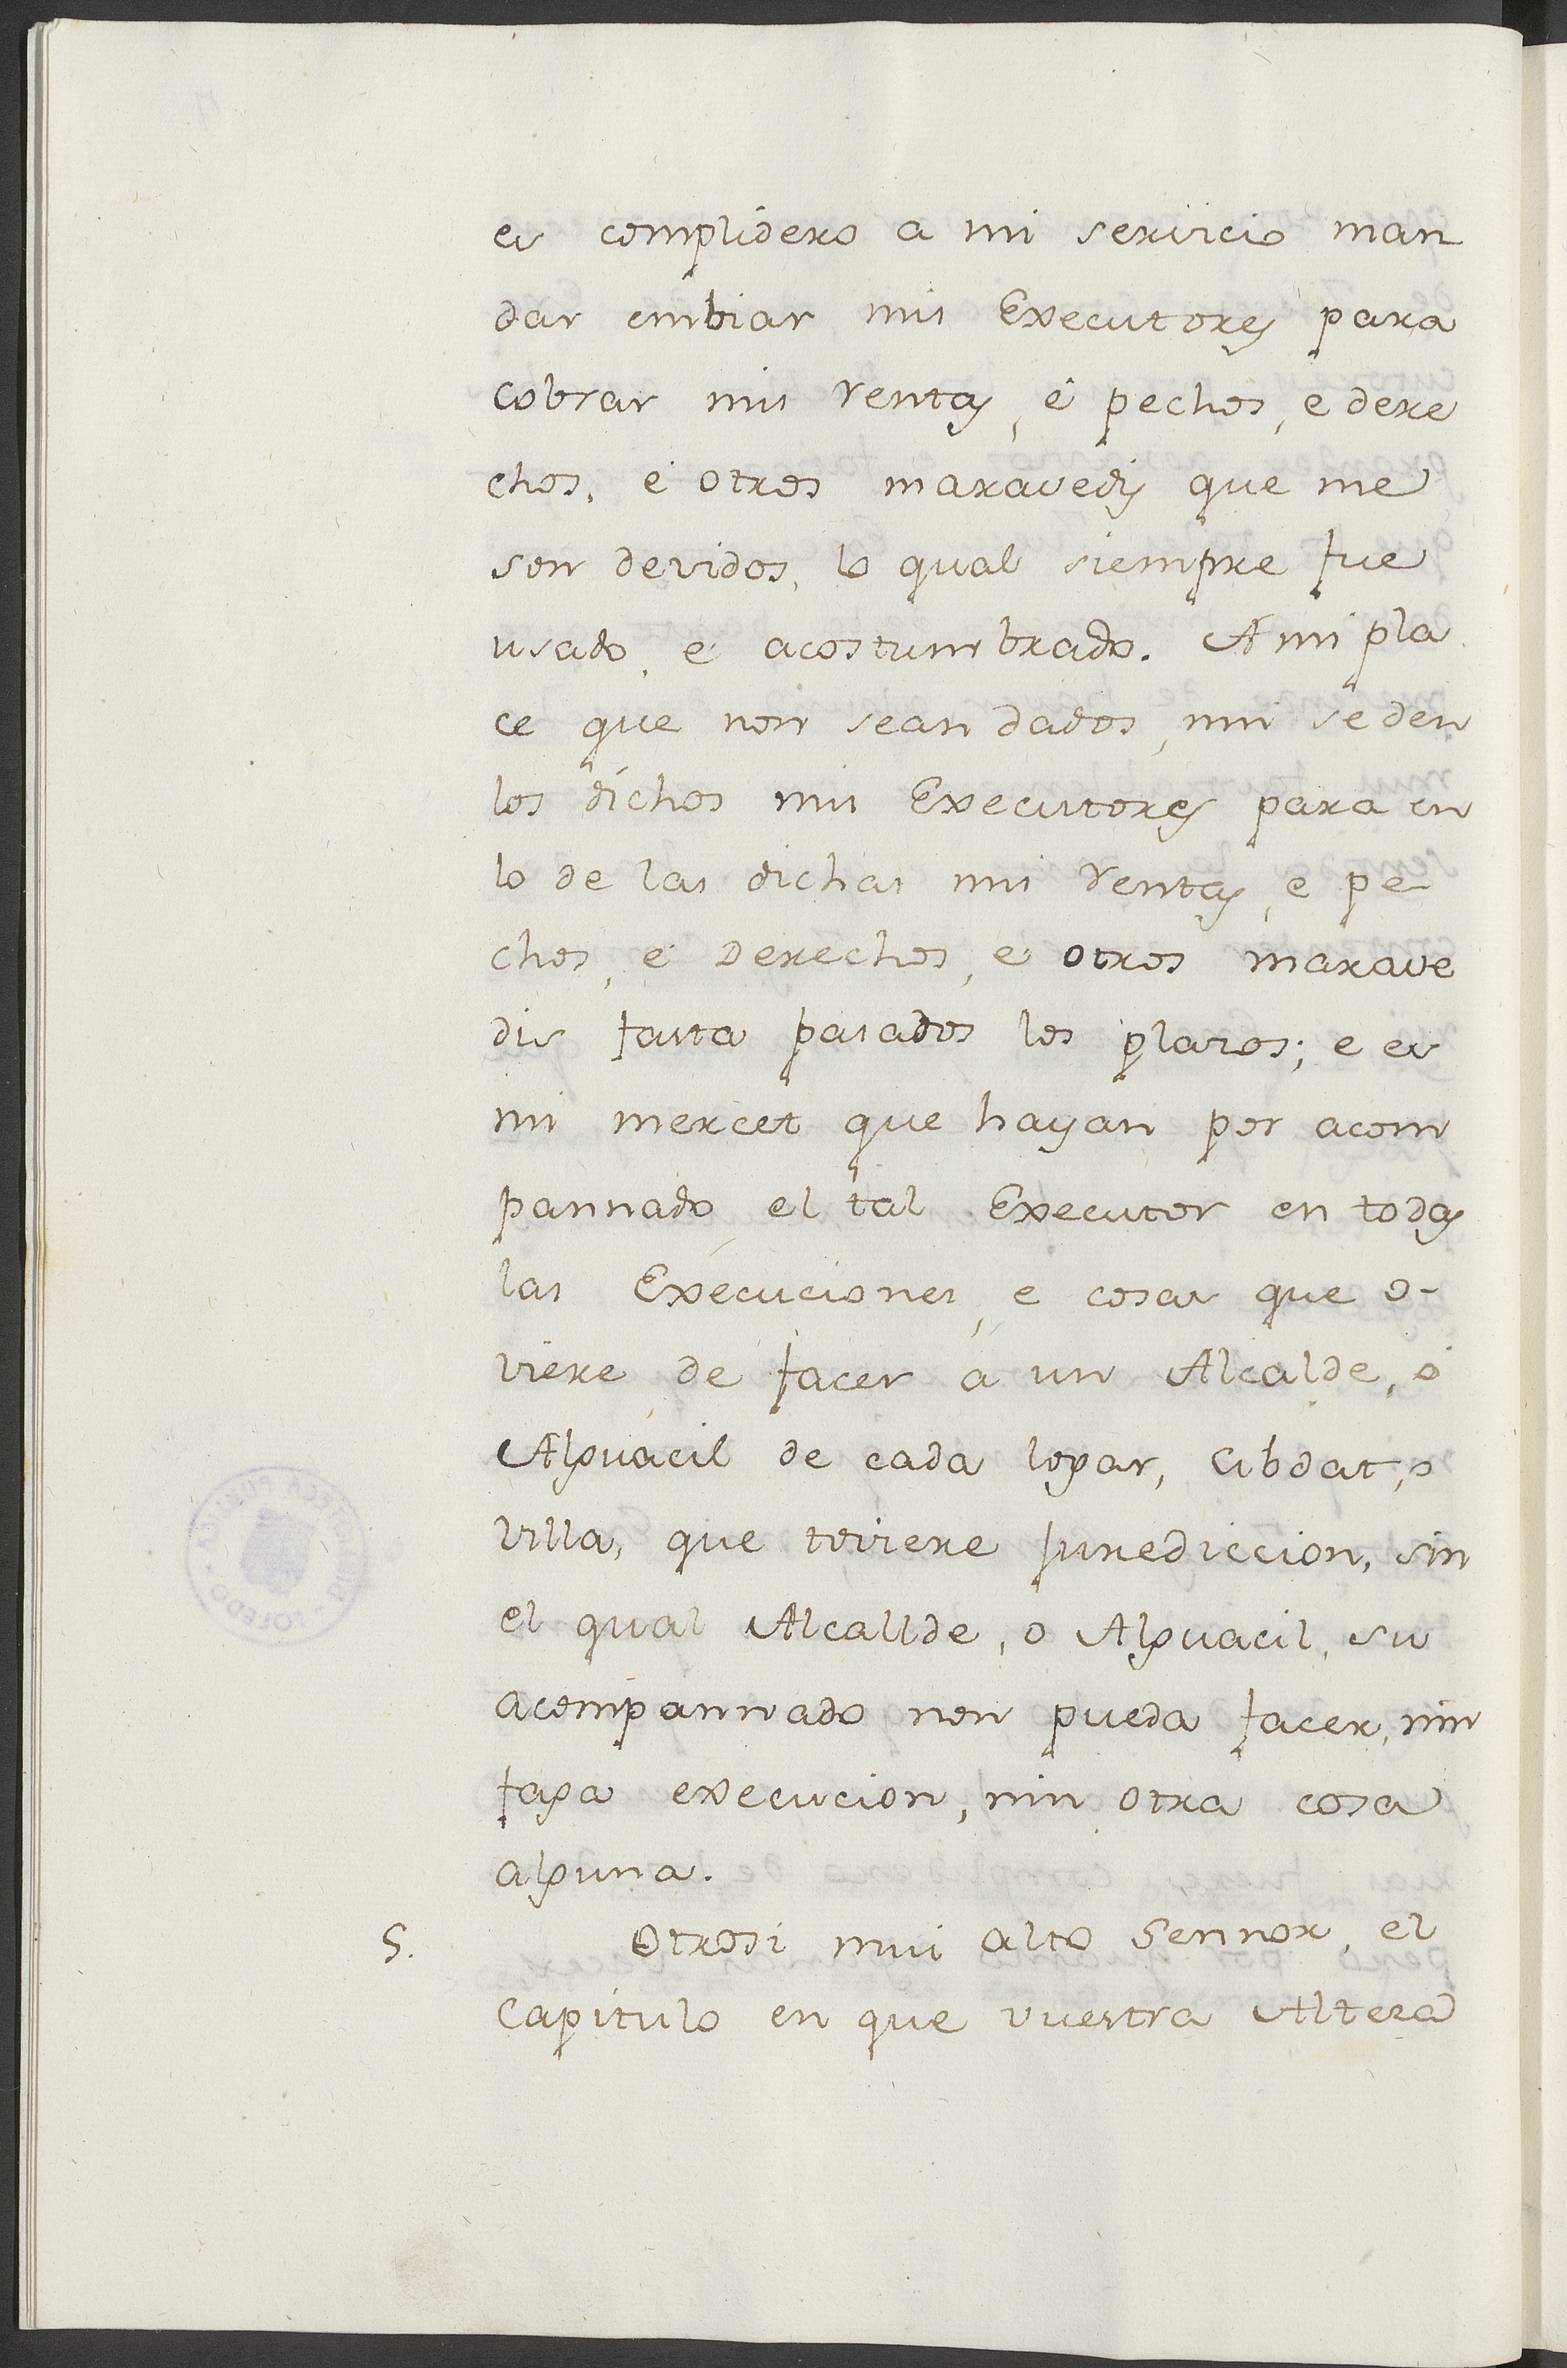 es complidero a mi servicio man
dar embiar mis Executores para
cobrar mis rentas, é pechos, e dere
chos, é otros maravedis que me
son devidos, lo qual siempre fue
usado, e acostumbrado. A mi pla
ce que non sean dados, nin se den
los dichos mis Executores para en
lo de las dichas mis rentas, e pe-
chos, e Derechos, e otros marave
dis fasta pasados los plazos; e es
mi mercet que hayan por acom
pannado el tal Executor en todas
las Execuciones, e cosas que o-
viere de facer á un Alcalde, ó
Alguacil de cada logar, Cibdat, o
Villa, que toviere Jurediccion, sin
el qual Alcallde, o Alguacil, su
acompannado non pueda facer, nin
faga execucion, nin otra cosa
alguna.
5. Otrosi mui alto Sennor, el
Capitulo en que vuestra Alteza
BIBLIOTECA PUBLICA - TOLEDO -